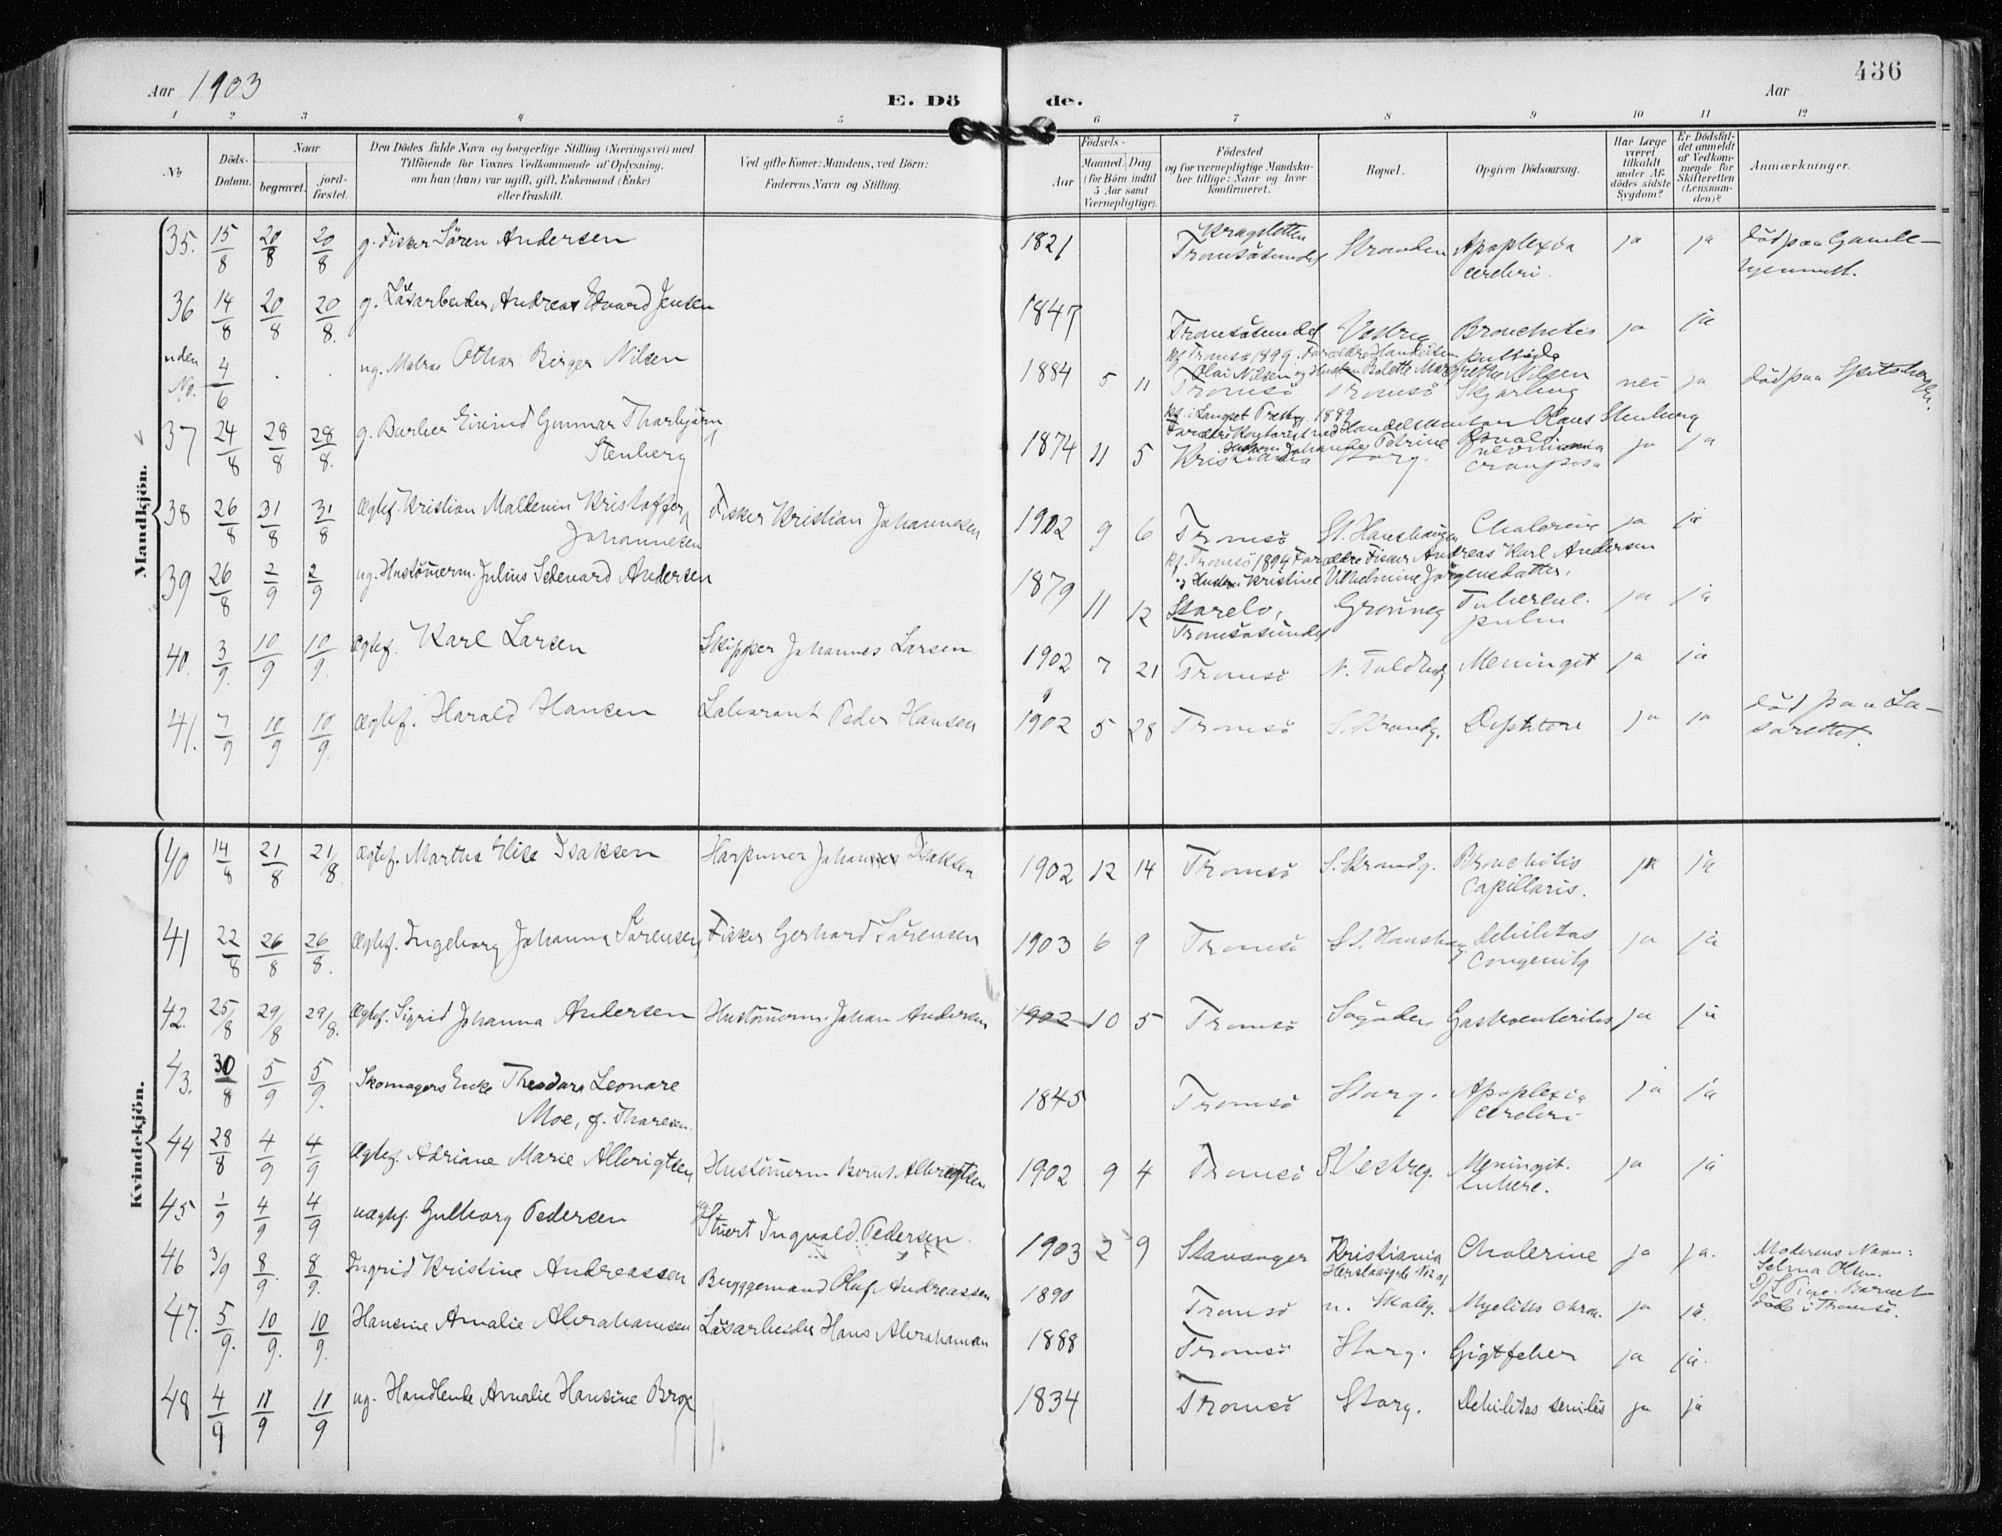 Aar 1903
E. Döde.
Aar
436
1 2 3 4 5 6 7 8 9 10 11 12
No
Döds-Datum.
Naar
begravet.
jord-fæstet.
Den Dödes fulde Navn og borgerlige Stilling (Næringsvei) med
Tilföiende for Voxnes Vedkommende af Oplysning,
om han (hun) var ugift, gift, Enkemand (Enke)
eller fraskilt.
Ved gifte Koner: Mandens, ved Börn:
Faderens Navn og Stilling.
Födsels-
Aar
Maaned. Dag
(for Börn indtil
5 Aar samt
Værnepligtige).
Födested
og for værnepligtige Mandska-
ber tillige: Naar og hvor
konfirmeret.
Bopæl.
Opgiven Dödsaarsag.
Har Læge
været
tilkaldt
under Af-
dödes sidste
Sygdom?
Er Dödsfal-
det anmeldt
af Vedkom-
mende for
Skifteretten
(Lensman-
den)?
Anmærkninger.
Mandkjön.
35. 15/8 20/8 20/8 g. Fisker Sören Andersen 1821 Tromsösundet Stranden Apoplexia cerebri. ja ja Död paa Gamle-hjemmet.
36 14/8 20/8 20/8. g. Lösarbeider Andreas Edvard Jensen 1847 Tromsösundet Vestreg Bronchitis ja ja
uden No. 4/6 . . ug. Matros Othar Birger Nilsen 1884 5 11 Kf Tromsö 1899. Forældre Olai Nilsen og Hustru Bolette Margrethe Nilsen
Tromsö Tromsö Skjörbug nei ja död paa Spitsbergen.
37 24/8 28/8 28/8. g. Barber Eivind Gunnar Thorbjörn Stenberg 1874 11 5 Kristiania Storg. crouposa ja ja
38 26/8 31/8 31/8 Ægtef. Kristian Maldenin Kristoffer Johannesen Fisker Kristian Johannesen 1902 9 6 Tromsö St. Hanshaugen Cholerine ja ja
39 26/8 2/9 2/9 ug. Hustömerm. Julius Sedevard Andersen 1879 11 12 Kf. Tromsö 1894 Forældre Fisker Andreas Karl Andersen
og Hustru Kristine Vilhelmine Jörgensdatter.
Tromsösundet Grönneg Tubercul. pulm ja ja
40. 3/9. 10/9 10/9. Ægtef. Karl Larsen Skipper Johannes Larsen 1902 7 21 Tromsö N. Toldbodg Meningit ja ja
41. 7/9 10/9 10/9. Ægtef. Harald Hansen Laborant Peder Hansen 1902 5 28 Tromsö S. Strandg. Difteri ja ja död paa La-sarettet.
Kvindekjön.
40 14/8 21/8 21/8. Ægtef. Martha Elise Isaksen Harpuner Johannes Isaksen 1902 12 14 Tromsö S. Strandg. Bronchitis Capillaris. ja ja
41 22/8 26/8 26/8. Ægtef. Ingeborg Johanna Sörensen Fisker Gerhard Sörensen 1903 6 9 Tromsö St. Hanshaug Debilitas Congenita ja ja
42. 25/8 29/8 29/8. Ægtef. Sigrid Johanna Andersen Hustömerm. Johan Andersen 1902 10 5 Tromsö Sögaden Gastroenterites ja ja
43. 30/8 5/9 5/9. Skomagers Enke Theodora Leonare Moe, f. Thoresen. 1845 Tromsö Storg. Apoplexia cerebri ja ja
44 28/8 4/9 4/9 Ægtef. Adriane Marie Albrigtsen Hustömerm Bernt Albrigtsen 1902 9 4 Tromsö S. Vestreg. Meningit. tuberc. ja ja
45 1/9 4/9 4/9 uægtef. Gulborg Pedersen ug. Stuert Ingvald Pedersen. 1903 2 9 Stavanger Kristiania Cholerine ja ja. Moderens Navn: Selma Olsen.
Barnet döde i Tromsö.
46 3/9 8/9. 8/9. Ingrid Kristine Andreassen Bryggemand Oluf Andreassen 1890 Tromsö n. Skoleg. Myelitis chron. ja ja.
47. 5/9. 10/9. 10/9. Hansine Amalie Abrahamsen Lösarbeider Hans Abrahamsen 1888 Tromsö Storg. Gigtfeber ja ja.
48 4/9 11/9 11/9 ug. Handlende Amalie Hansine Brox 1834 Tromsö Storg. Debilitas senilis ja ja